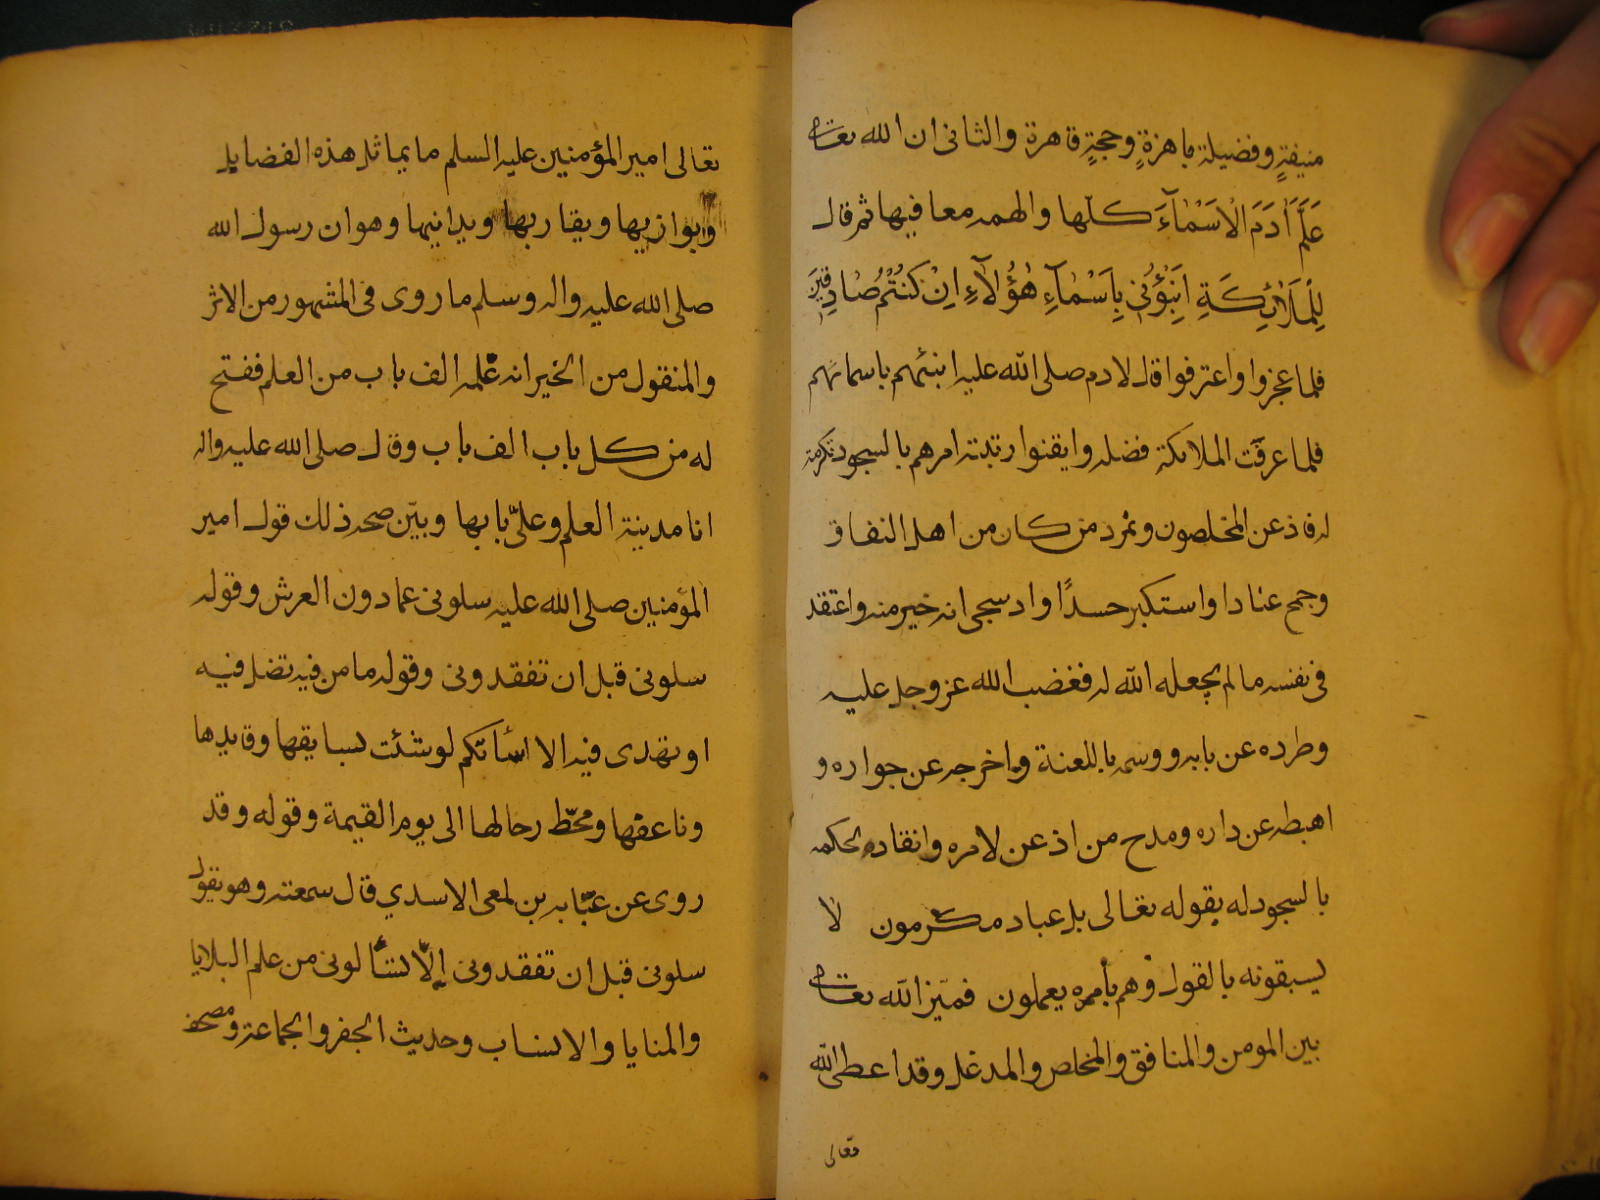 منيفةٍ وفضيلة باهزةٍ وحجةٍ قاهرة والثانى ان الله تعالى
عَلَّمَ اٰدَمَ الْاَسْمَآءَ كلّها والهمه معا فيها ثم قال
لِلْمَلٰٓائِكَةِ اَنْبِؤُنى بِاَسْمَآءِ هٰٓؤُلآءِ اِنْ كُنْتُمْ صَادِقِينَ
فلما عجزوا واعترفوا قال لادم صلى الله عليه انبئهم باسمائهم
فلما عرفت الملائكة فضله وايقنوا رتبته امرهم بالسجود تكرمة
له فاذعن المخلصون وتمرد من كان من اهل النفاق
وجمح عنادا واستكبر حسدًا وادسجى انه خير منه واعتقد
فى نفسه ما لم يجعله الله له فغضب الله عز وجل عليه
وطرده عن بابه ووسمه باللعنة واخرجه عن جواره و
اهبطه عن داره ومدح من اذعن لامره وانقاد لحكمه
بالسجود له بقوله تعالى بل عباد مكرمون لا
يسبقونه بالقول وهم بأمره يعملون فميّز الله تعالى
بين المومن والمنافق والمخلص والمدغل وقد اعطى الله
تعالى
تعالى امير المؤمنين عليه السلم ما يماثل هذه الفضايل
ويوازيها ويقاربها ويدانيها وهو ان رسول الله
صلى الله عليه واله وسلم ما روى فى المشهور من الاثر
والمنقول من الخير انه علمه الف باب من العلم ففتح
له من كل باب الف باب وقال صلى الله عليه واله
انا مدينة العلم وعلىّ بابها وبيّن صحه ذلك قول امير
المؤمنين صلى الله عليه سلونى عما دون العرش وقوله
سلونى قبل ان تفقدونى وقوله ما من فيه تضل فيه
او تهدى فيه الا لو شئت لسايقها وقايدها
وناعقها ومحطّ رحالها الى يوم القيمة وقوله وقد
روى عن عبّايه بن لمعى الاسدي قال سمعته وهو يقول
سلونى قبل ان تفقدونى من علم البلايا
والمنايا والانساب وحديث الجفر والجماعة ومصحف